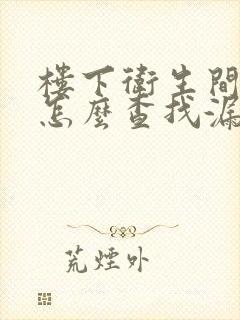 樓下衛生間
怎麼查找漏
荒煙外